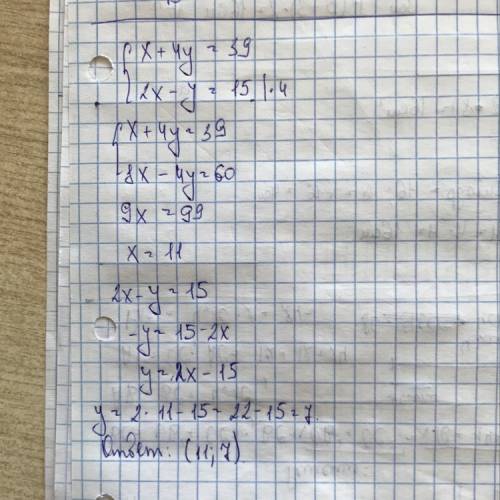 x + 4y = 39
2x - y = 15 | · 4
x + 4y = 39
8x - 4y = 60
9x = 99
x = 11
2x - y = 15
-y = 15 - 2x
y = 2x - 15
y = 2 · 11 - 15 = 22 - 15 = 7.
Ответ: (11; 7)